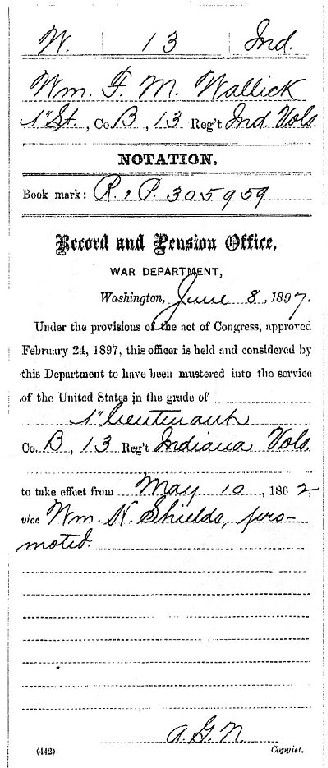 W. 13 Ind.
Wm. F. M. Wallick
1" Lt., Co. B, 13 Reg't Ind Vols
NOTATION.
Book mark: R. & P. 305959
Record and Pension Office,
WAR DEPARTMENT,
Washington, June 8, 1897.
Under the provisions of the act of Congress, approved
February 24, 1897, this officer is held and considered by
this Department to have been mustered into the service
of the United States in the grade of
1" Lieutenant
Co. B, 13 Reg't Indiana Vols
to take effect from May 10, 1862
vice Wm. H. Shields, pro-
moted.
A.G.N
(442) Copyist.